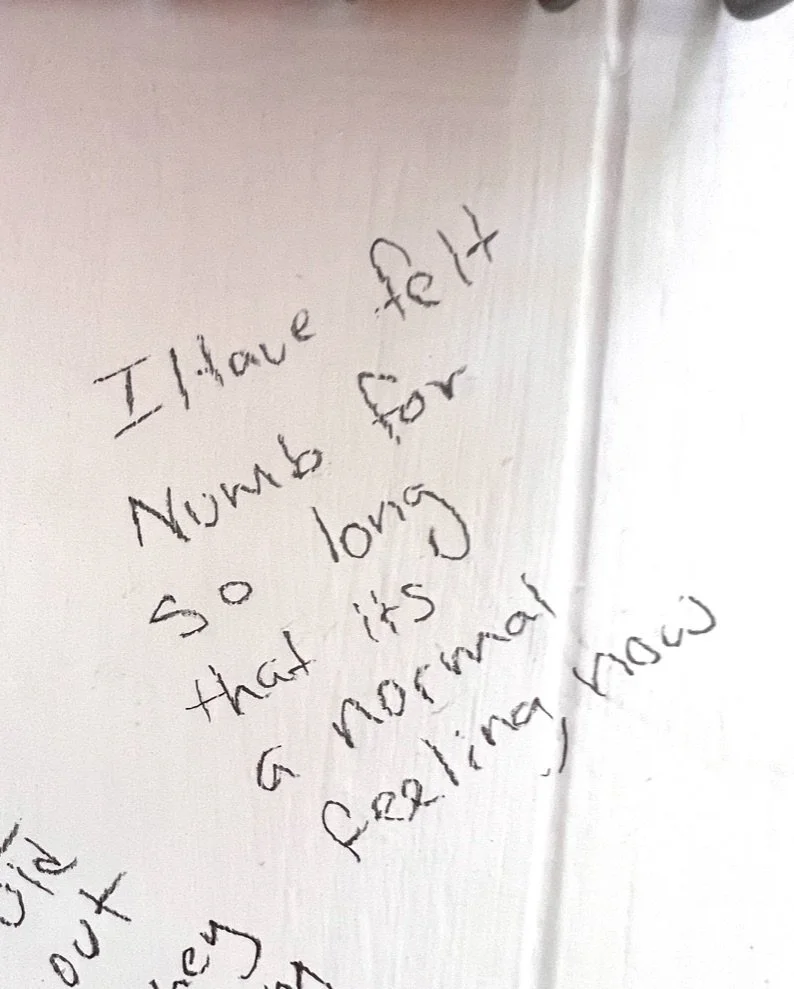 I Have felt
Numb for
so long
that its
a normal
feeling now
out
hey